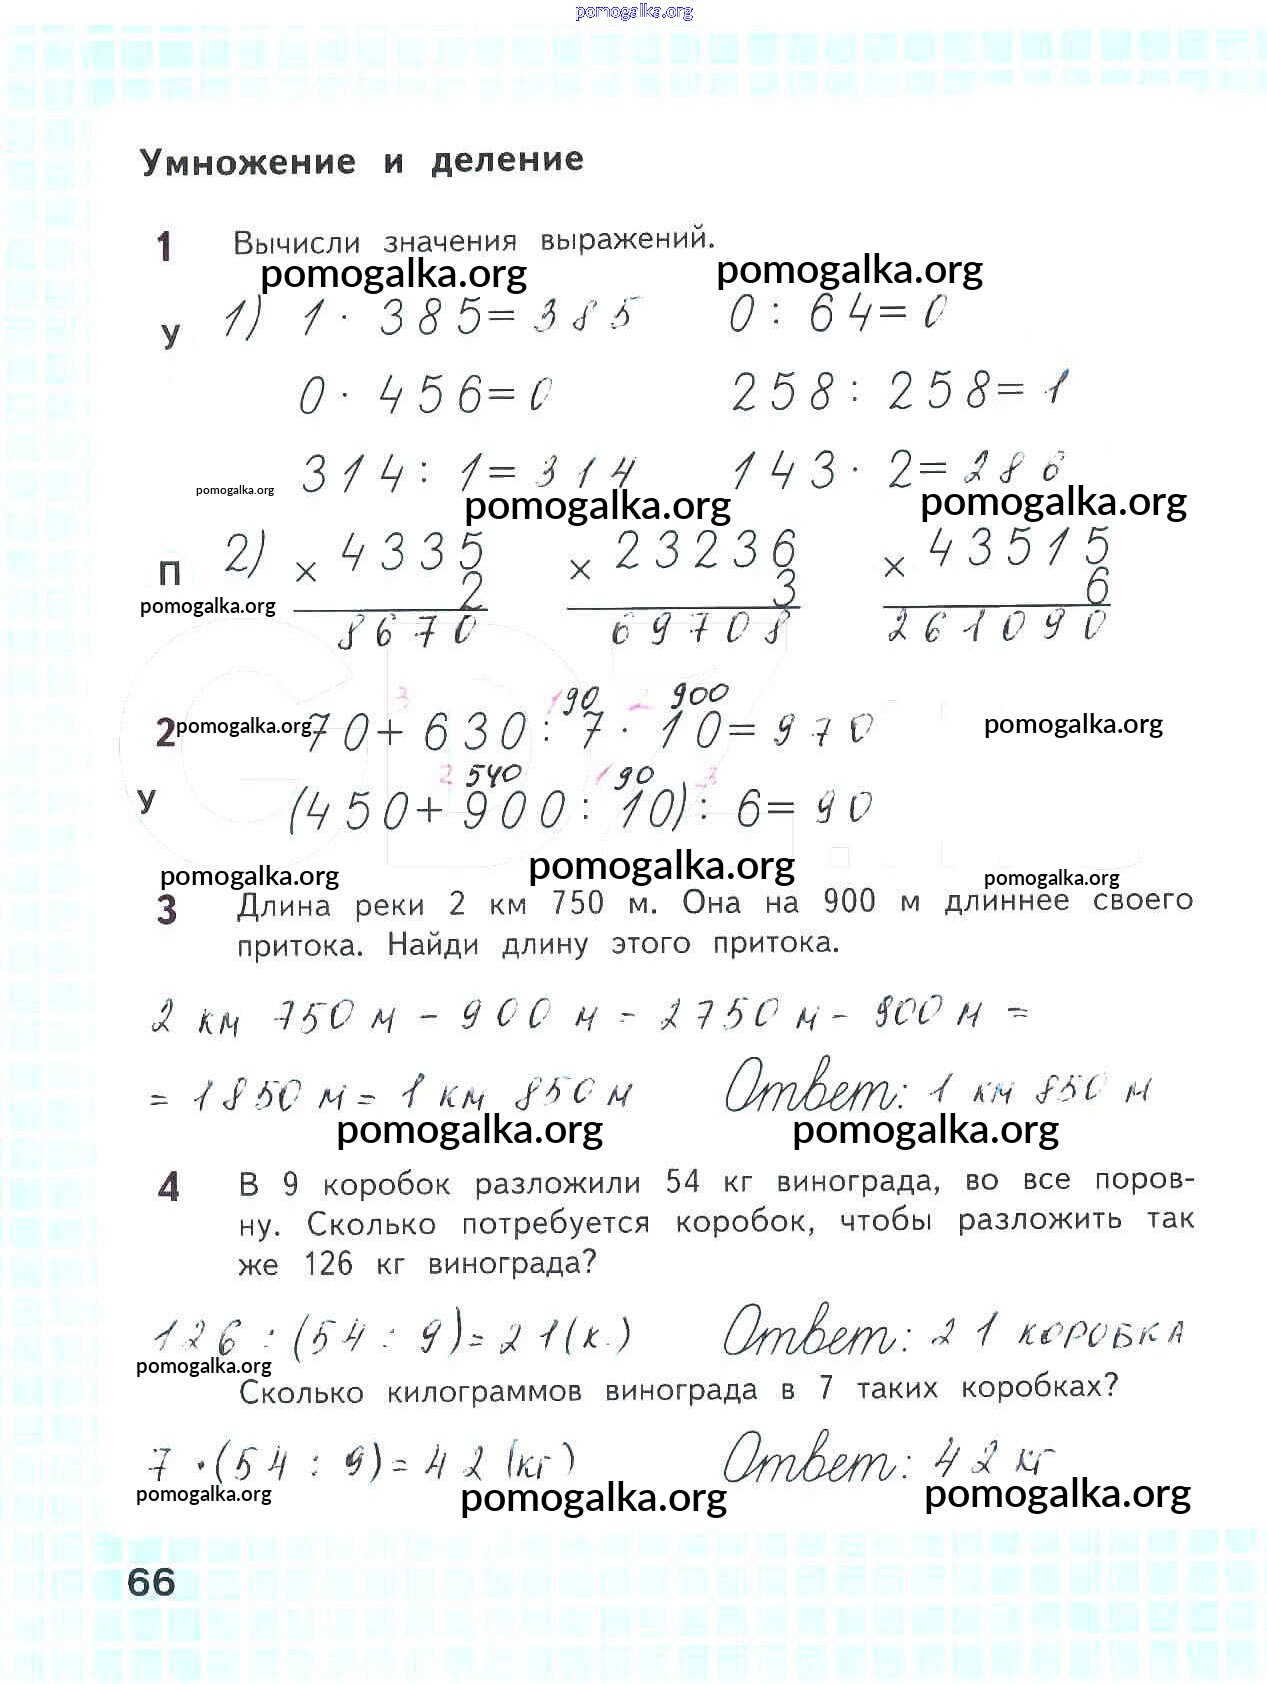 pomogalka.org
Умножение и деление
1 Вычисли значения выражений.
pomogalka.org pomogalka.org
У 1) 1 · 385 = 385 0 : 64 = 0
0 · 456 = 0 258 : 258 = 1
314 : 1 = 314 143 · 2 = 286
pomogalka.org pomogalka.org pomogalka.org
П 2) × 4335 × 23236 × 43515
2 3 6
pomogalka.org
8670 69708 261090
3 1 90 2 900
2 pomogalka.org 70 + 630 : 7 · 10 = 970 pomogalka.org
2 540 1 90 3
У (450 + 900 : 10) : 6 = 90
pomogalka.org pomogalka.org pomogalka.org
3 Длина реки 2 км 750 м. Она на 900 м длиннее своего
притока. Найди длину этого притока.
2 км 750 м - 900 м = 2750 м - 900 м =
= 1850 м = 1 км 850 м Ответ: 1 км 850 м
pomogalka.org pomogalka.org
4 В 9 коробок разложили 54 кг винограда, во все поров-
ну. Сколько потребуется коробок, чтобы разложить так
же 126 кг винограда?
126 : (54 : 9) = 21 (к.) Ответ: 21 коробка
pomogalka.org
Сколько килограммов винограда в 7 таких коробках?
7 · (54 : 9) = 42 (кг) Ответ: 42 кг
pomogalka.org pomogalka.org pomogalka.org
66